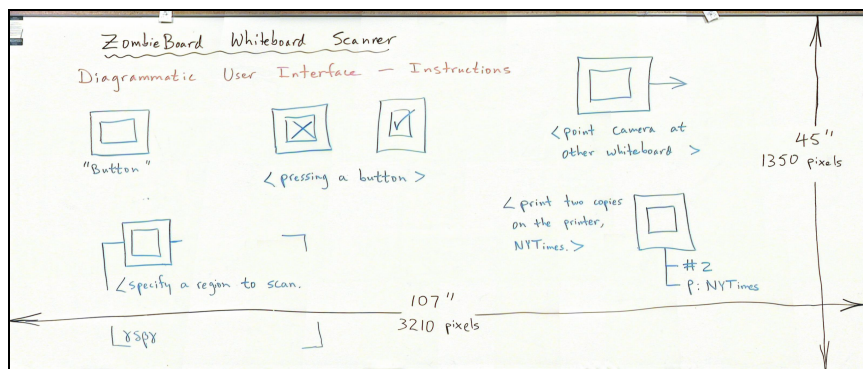 ZombieBoard Whiteboard Scanner
Diagrammatic User Interface — Instructions
"Button"
< pressing a button >
< point camera at
other whiteboard >
45"
1350 pixels
< print two copies
on the printer,
NYTimes. >
# 2
p: NYTimes
< specify a region to scan.
107"
3210 pixels